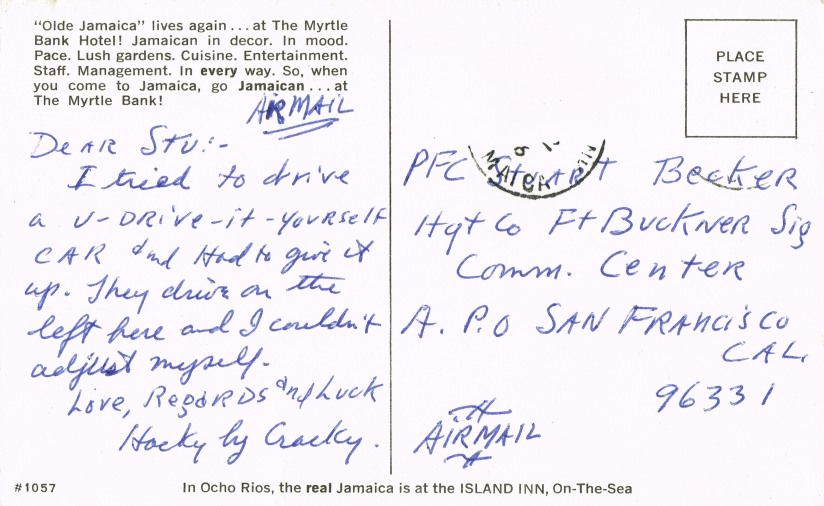 "Olde Jamaica" lives again...at The Myrtle
Bank Hotel! Jamaican in decor. In mood.
Pace. Lush gardens. Cuisine. Entertainment.
Staff. Management. In every way. So, when
you come to Jamaica, go Jamaican...at
The Myrtle Bank!
AIRMAIL
Dear Stu:-
I tried to drive
a U-DRive-it-yourself
CAR and Had to give it
up. They drive on the
left here and I couldn't
adjust myself.
Love, Regards and Luck
Hacky by Cracky.
#1057
PLACE
STAMP
HERE
PFC Stuart Becker
Hqt Co Ft Buckner Sig
Comm. Center
A. P.O SAN FRANCISCO
CAL.
96331
AIRMAIL
In Ocho Rios, the real Jamaica is at the ISLAND INN, On-The-Sea